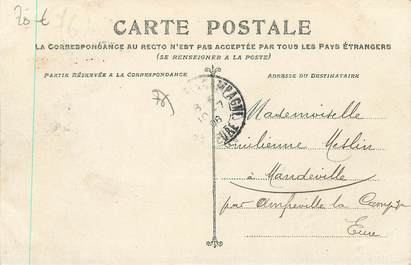 20 €
CARTE POSTALE
LA CORRESPONDANCE AU RECTO N'EST PAS ACCEPTÉE PAR TOUS LES PAYS ÉTRANGERS
(SE RENSEIGNER A LA POSTE)
PARTIE RÉSERVÉE A LA CORRESPONDANCE
ADRESSE DU DESTINATAIRE
CAMPAGNE
EURE
Mademoiselle
Emilienne
à Mandeville
par Amfreville la Campe
Eure